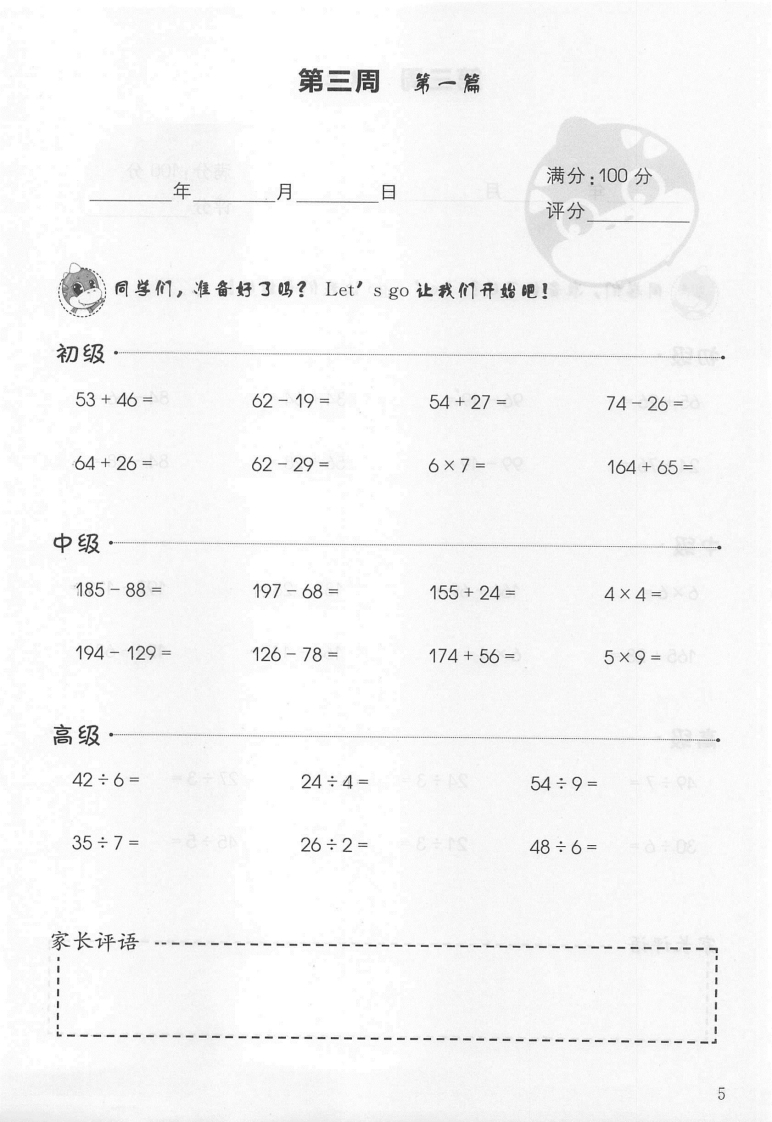 第三周 第一篇
满分:100分
____年____月____日
评分____
同学们，准备好了吗？ Let's go 让我们开始吧！
初级
53+46= 62-19= 54+27= 74-26=
64+26= 62-29= 6×7= 164+65=
中级
185-88= 197-68= 155+24= 4×4=
194-129= 126-78= 174+56= 5×9=
高级
42÷6= 24÷4= 54÷9=
35÷7= 26÷2= 48÷6=
家长评语
5